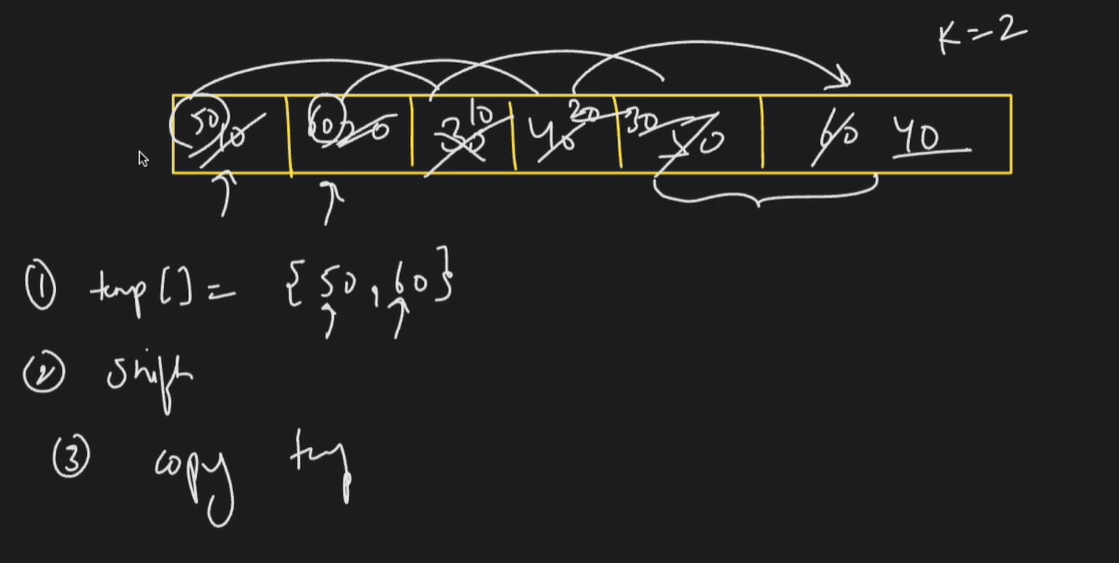 K=2
50 10 60 20 30 10 40 20 30 50 60 40
① temp[] = {50, 60}
② shift
③ copy temp